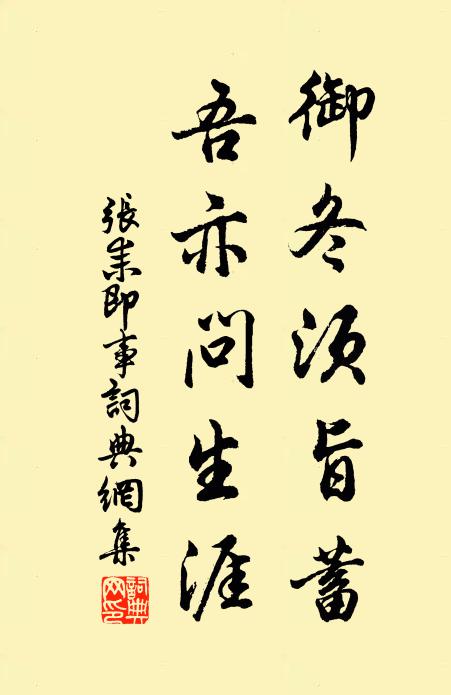 御冬须旨蓄
吾亦问生涯
張耒即事詞典網集
詞典网印